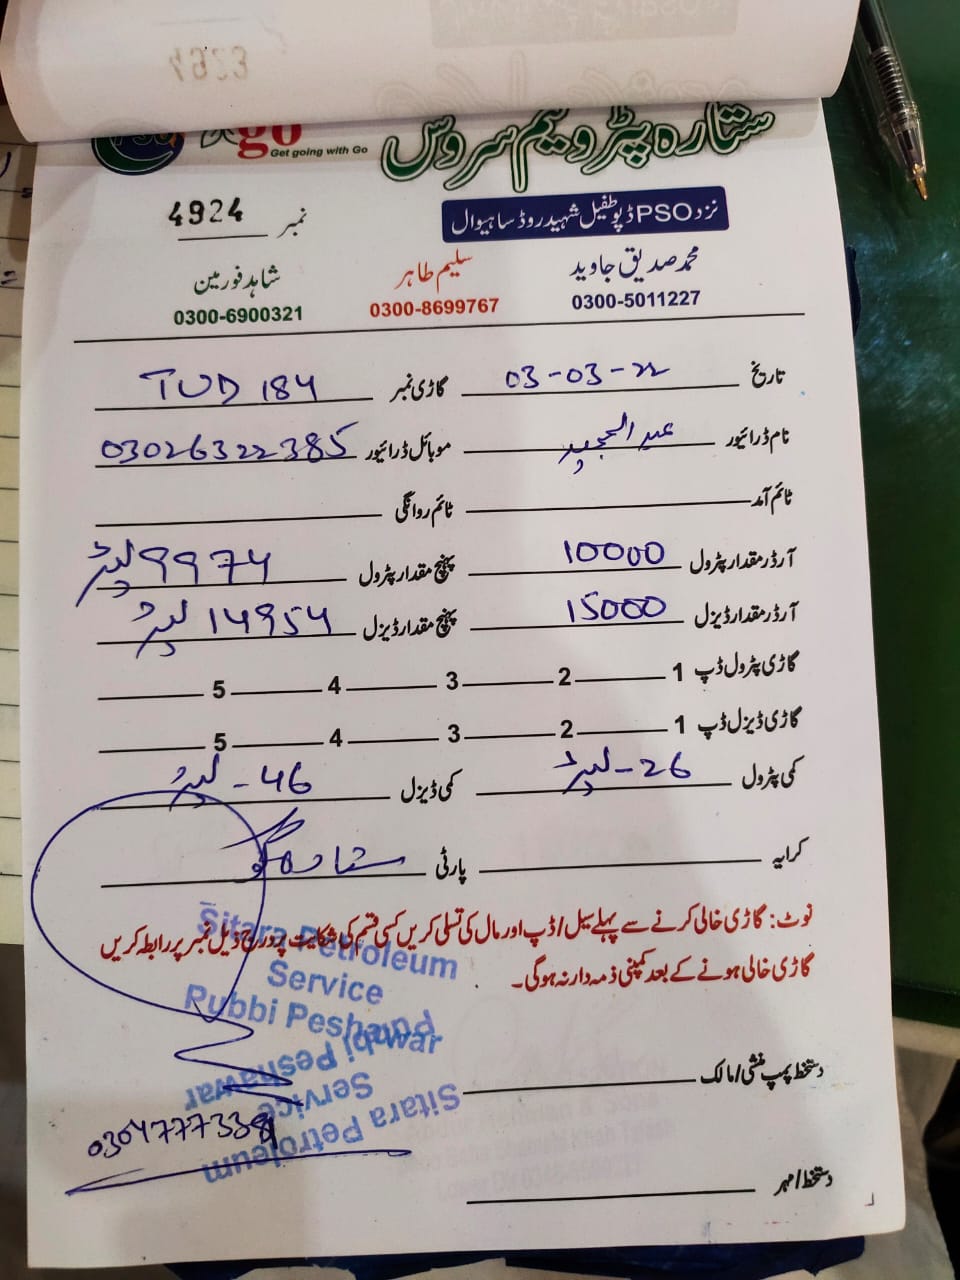 4923
PSO
go
Get going with Go
ستارہ پٹرولیم سروس
نزد PSO ڈپو طفیل شہید روڈ ساہیوال
نمبر 4924
محمد صدیق جاوید سلیم طاہر شاہد فورمین
0300-5011227 0300-8699767 0300-6900321
تاریخ 03-03-22 گاڑی نمبر TUD 184
نام ڈرائیور عبدالمجید موبائل ڈرائیور 03026322385
ٹائم آمد ٹائم روانگی
آرڈر مقدار پٹرول 10000 پہنچ مقدار پٹرول 9974 لیٹر
آرڈر مقدار ڈیزل 15000 پہنچ مقدار ڈیزل 14954 لیٹر
گاڑی پٹرول ڈپ 1 2 3 4 5
گاڑی ڈیزل ڈپ 1 2 3 4 5
کمی پٹرول 26 - لیٹر کمی ڈیزل 46 - لیٹر
کرایہ پارٹی ستارہ گو
نوٹ: گاڑی خالی کرنے سے پہلے سیل / ڈپ اور مال کی تسلی کریں کسی قسم کی شکایت پر درج ذیل نمبر پر رابطہ کریں
گاڑی خالی ہونے کے بعد کمپنی ذمہ دار نہ ہوگی۔
Sitara Petroleum
Service
Rubbi Peshawar
Sitara Petroleum
Service
Rubbi Peshawar
دستخط پمپ منشی / مالک
دستخط / مہر